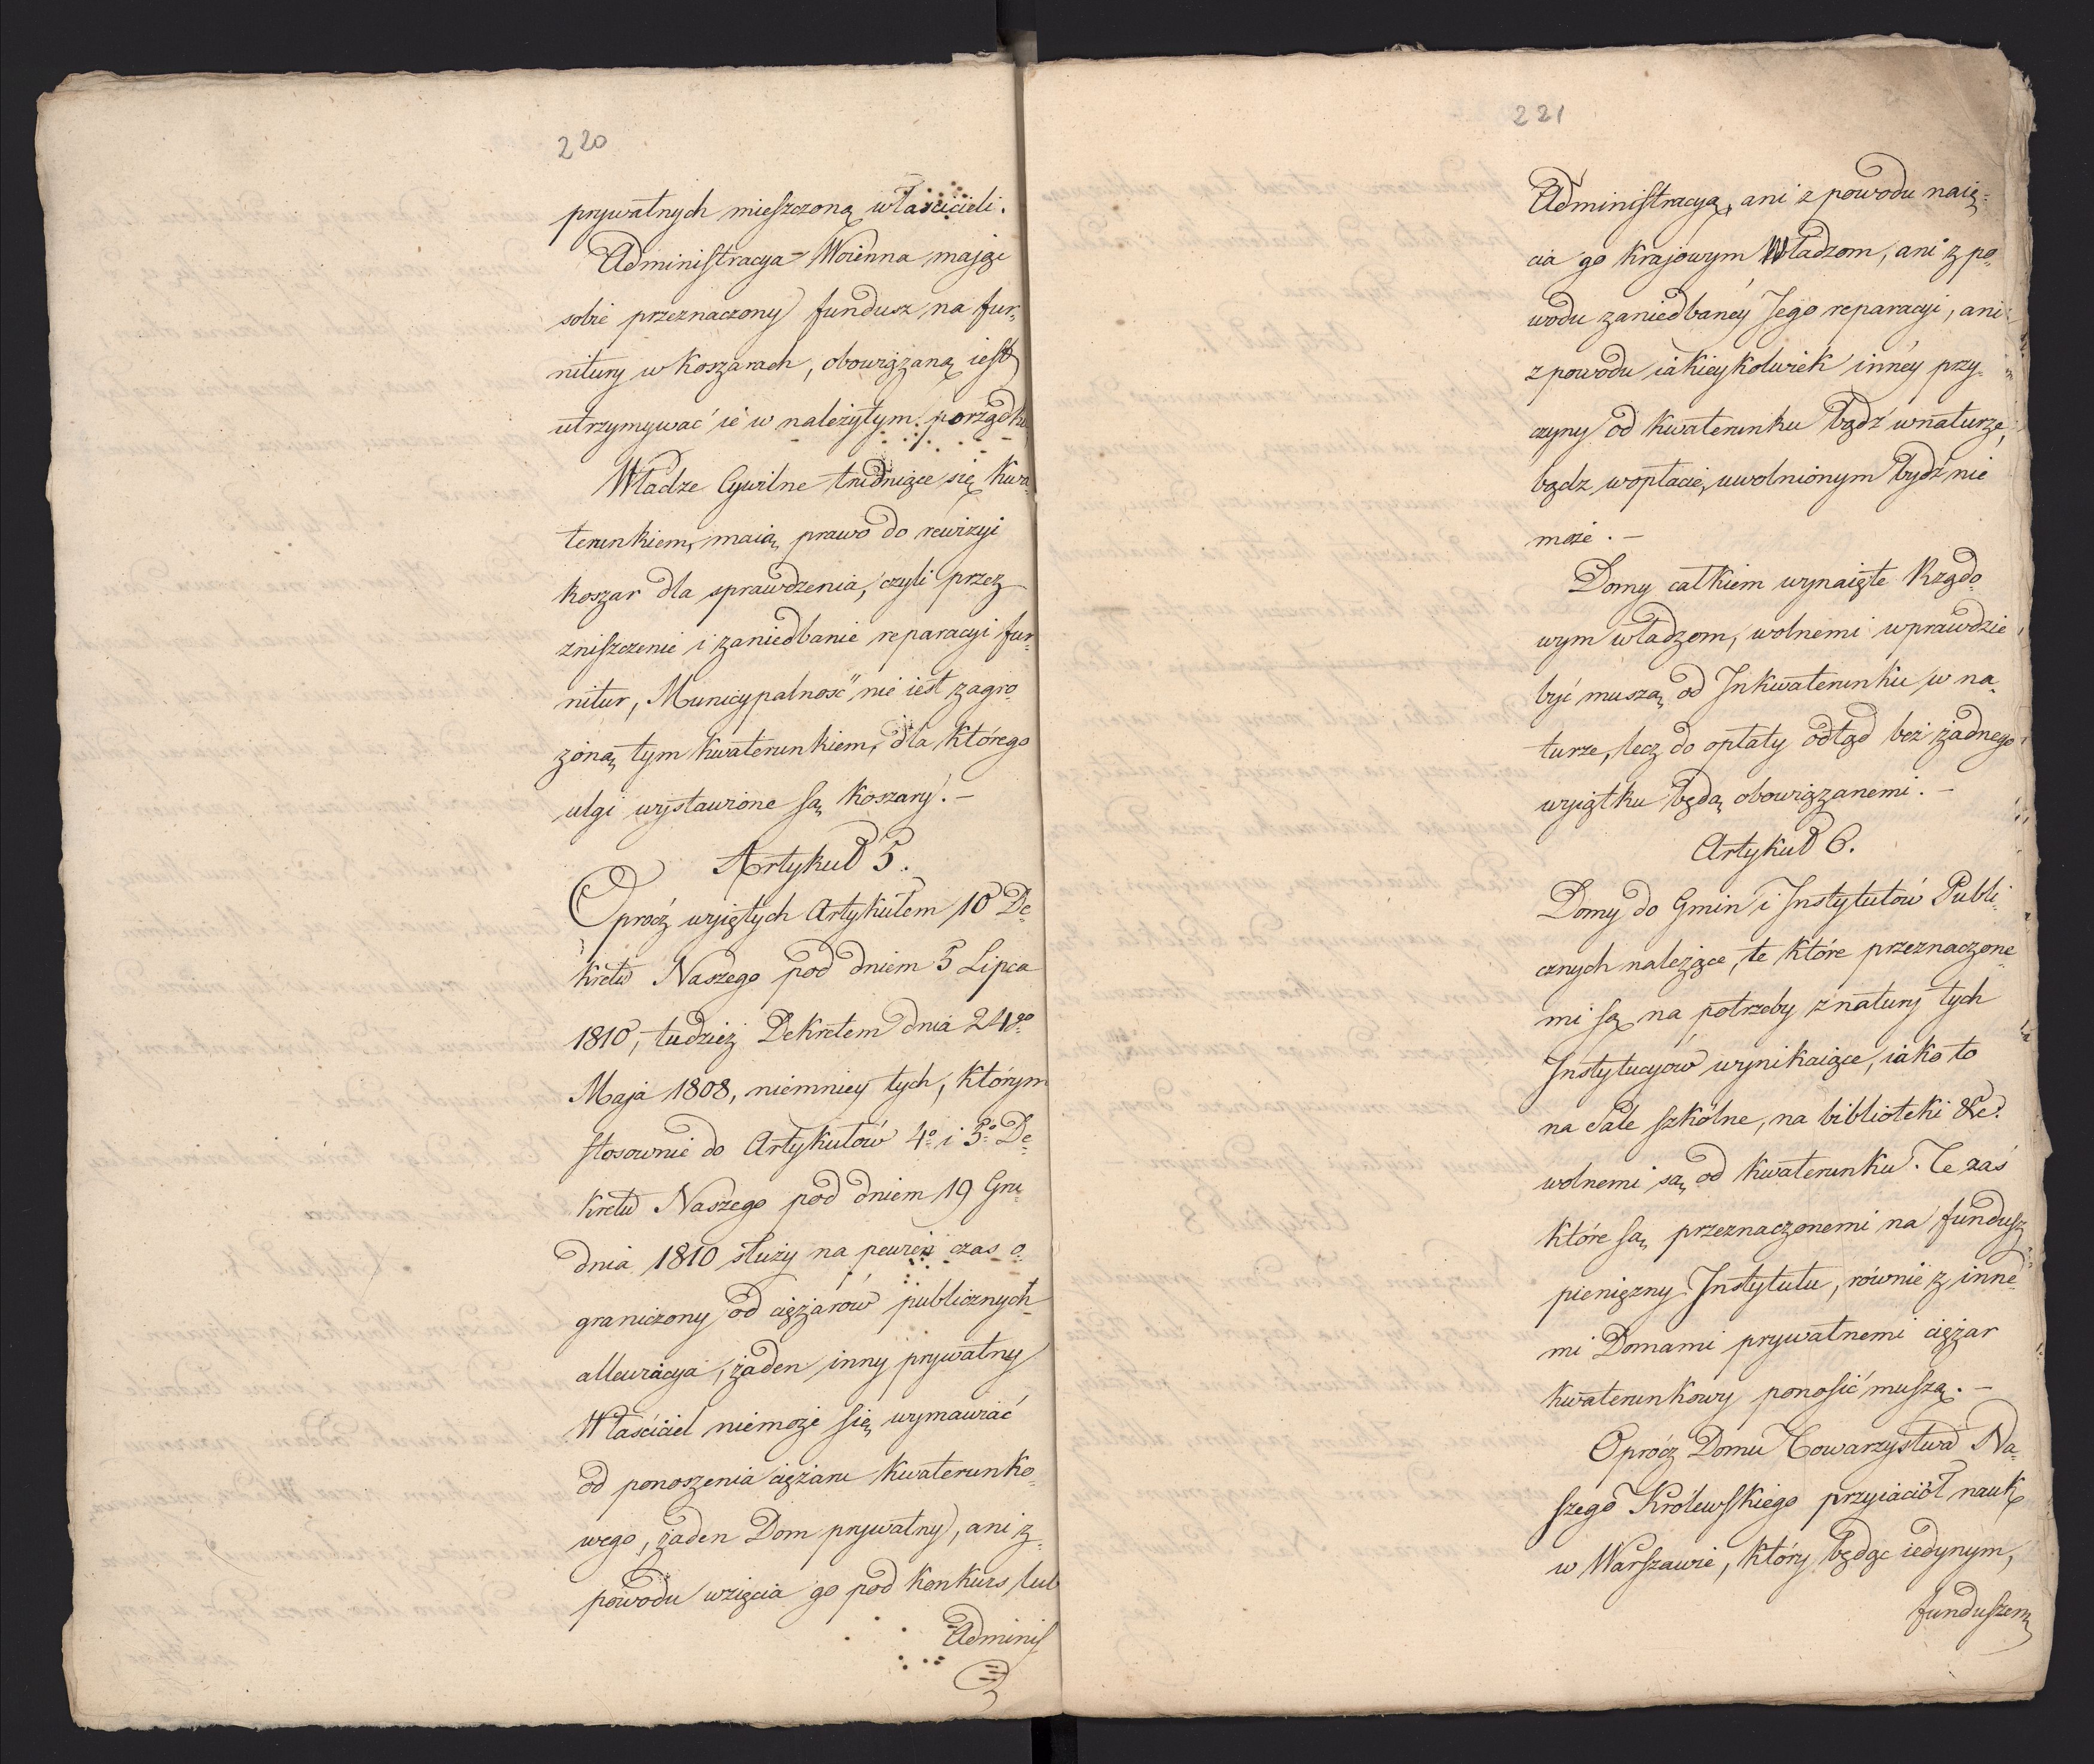 220
prywatnych mieszczoną właścicieli.
Administracya Woienna mając
sobie przeznaczony fundusz na fur„
nitury w Koszarach, obowiązaną iest
utrzymywać ie w należytym porządku
Władze Cywilne trudniące się Kwa„
terunkiem, maią prawo do rewizyi
koszar dla sprawdzenia, czyli przez
zniszczenie i zaniedbanie reparacyi fur„
nitur, Municypalność nie iest zagro„
żoną tym kwaterunkiem, dla którego
ulgi wystawione są Koszary. –
Artykuł 5.
Oprócz wyiętych Artykułem 10 De„
kretu Naszego pod dniem 5 Lipca
1810, tudzież Dekretem dnia 24go
Maja 1808, niemniey tych, którym
stosownie do Artykułów 4o i 5o De„
kretu Naszego pod dniem 19 Gru„
dnia 1810 służy na pewien czas o„
graniczony od ciężarów publicznych
allewiacya, żaden inny prywatny
Właściciel niemoże się wymawiać
od ponoszenia ciężaru Kwaterunko„
wego, żaden Dom prywatny, ani z
powodu wzięcia go pod Konkurs, lub
Adminis
221
Administracyą, ani z powodu naię„
cia go Krajowym Władzom, ani z po„
wodu zaniedbaney Jego reparacyi, ani
z powodu iakieykolwiek inney przy„
czyny od kwaterunku bądź wnaturze,
bądz wopłacie, uwolnionym bydź nie
może. –
Domy całkiem wynaięte Rządo„
wym władzom, wolnemi wprawdzie
być muszą od Inkwaterunku w na„
turze, lecz do opłaty odtąd bez żadnego
wyiątku będą obowiązanemi. –
Artykuł 6.
Domy do Gmin i Instytutów Publi„
cznych należące, te które przeznaczone„
mi są na potrzeby z natury tych
Instytucyów wynikaiące, iako to
na Sale szkólne, na biblioteki &c.
wolnemi są od kwaterunku. Te zaś
które są przeznaczonemi na fundusz
pieniężny Instytutu, równie z inne„
mi Domami prywatnemi ciężar
kwaterunkowy ponosić muszą. –
Oprócz Domu Towarzystwa Na„
szego Królewskiego przyiaciół nauk
w Warszawie, który będąc iedynym,
funduszem